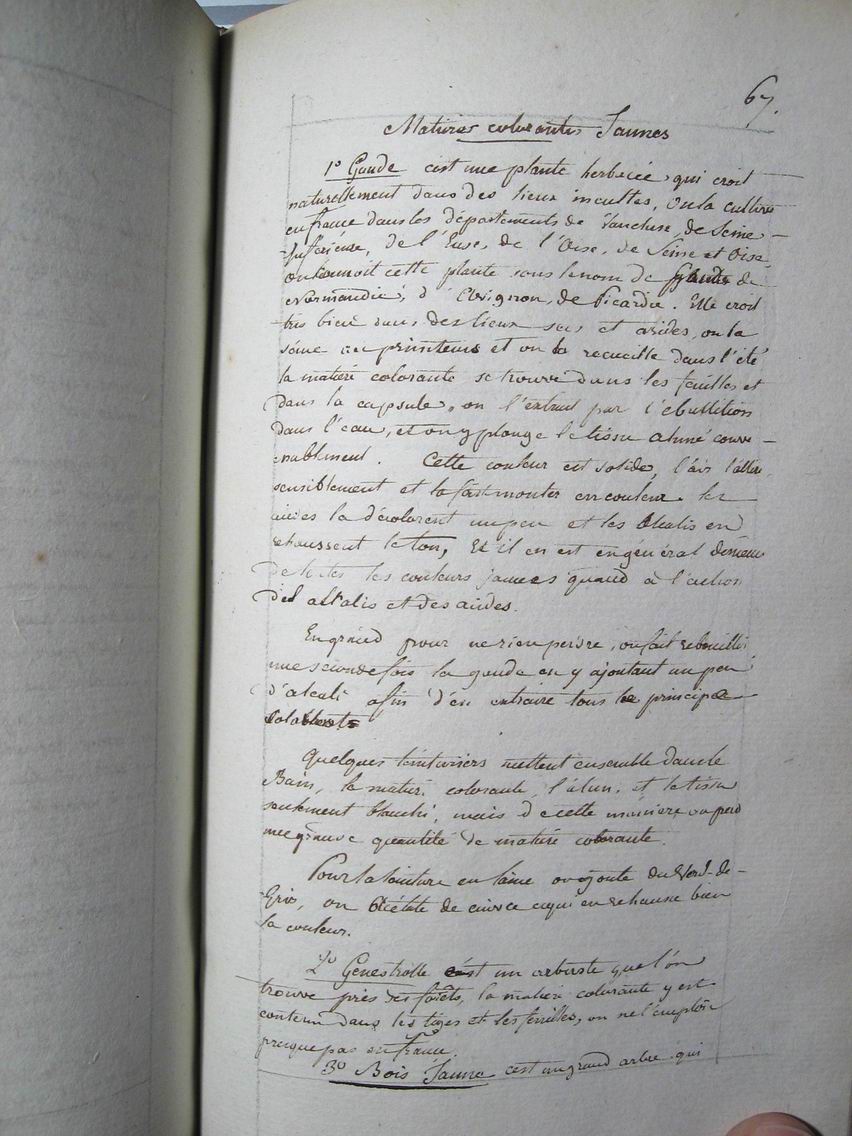 67.
Matieres colorantes Jaunes
1° Gaude c'est une plante herbacée, qui croit
naturellement dans des lieux incultes, on la cultive
en france dans les départements de Vaucluse, de Seine
Inférieure, de l'Eure, de l'Oise, de Seine et Oise
on connoit cette plante sous le nom de de
Normandie, d'Avignon, de Picardie. Elle croit
très bien dans des lieux secs et arides, on la
séme au printems et on la recueille dans l'été
la matiere colorante se trouve dans les feuilles et
dans la capsule, on l'extrait par l'ébullition
dans l'eau, et on y plonge le tissu aluné conve-
nablement. Cette couleur est solide, l'air l'altere
sensiblement et la fait monter en couleur. les
acides la décolorent un peu et les Alcalis en
rehaussent le ton, Et il en est en général de même
de toutes les couleurs jaunes quand à l'action
des alkalis et des acides.
En grand pour ne rien perdre, on fait rebouillir
une seconde fois la gaude en y ajoutant un peu
d'alcali afin d'en extraire tous le principe
colorant
Quelques teinturiers mettent ensemble dans le
Bain, la matiere colorante, l'alun, et le tissu
seulement blanchi, mais de cette maniere on perd
une grande quantité de matiere colorante.
Pour la teinture en laine on ajoute du Verd-de-
Gris, ou Acétate de cuivre ce qui en rehausse bien
la couleur.
2° Genestrolle c'est un arbuste que l'on
trouve près des forêts, la matiere colorante y est
contenu dans les tiges et les feuilles, on ne l'emploie
presque pas en france.
3° Bois Jaune c'est un grand arbre qui